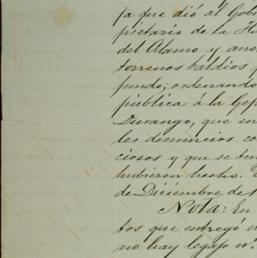 ja que dió al Gobi
pietario de la Ha
del Alamo y anex
terrenos baldíos y
pundo; ordenando
pública á la Gef
Durango, que en
les denuncios co
ciosos y que se ten
hubieren hecho.
de Diciembre de 1
Nota: En
tos que entregó e
no hay legajo nº.